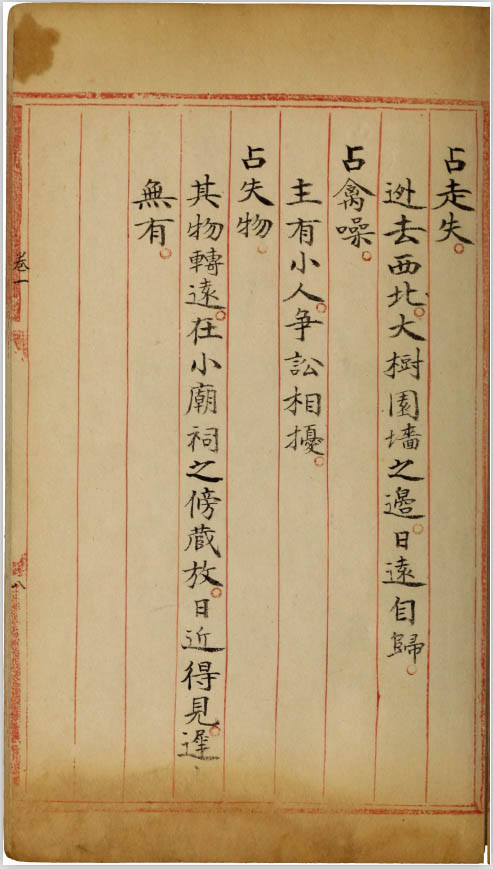 占走失。
逃去西北。大樹園墻之邊。日遠自歸。
占禽噪。
主有小人。爭訟相擾。
占失物。
其物轉遠。在小廟祠之傍藏放。日近得見。遲
無有。
卷一
八